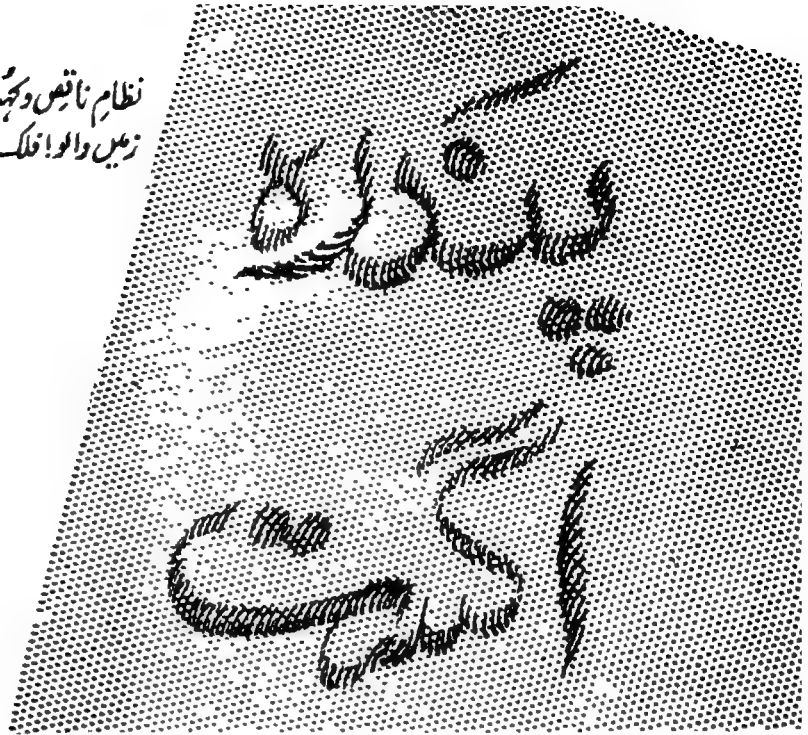 نظامِ ناقص و
زمیں والو! فلک
پندرہ
اگست